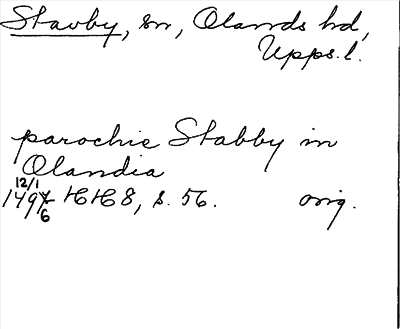 Stavby, sn, Olands hd,
Upps. l.
parochie Stabby in
Olandia
12/1
1496 HH 8, s. 56. orig.